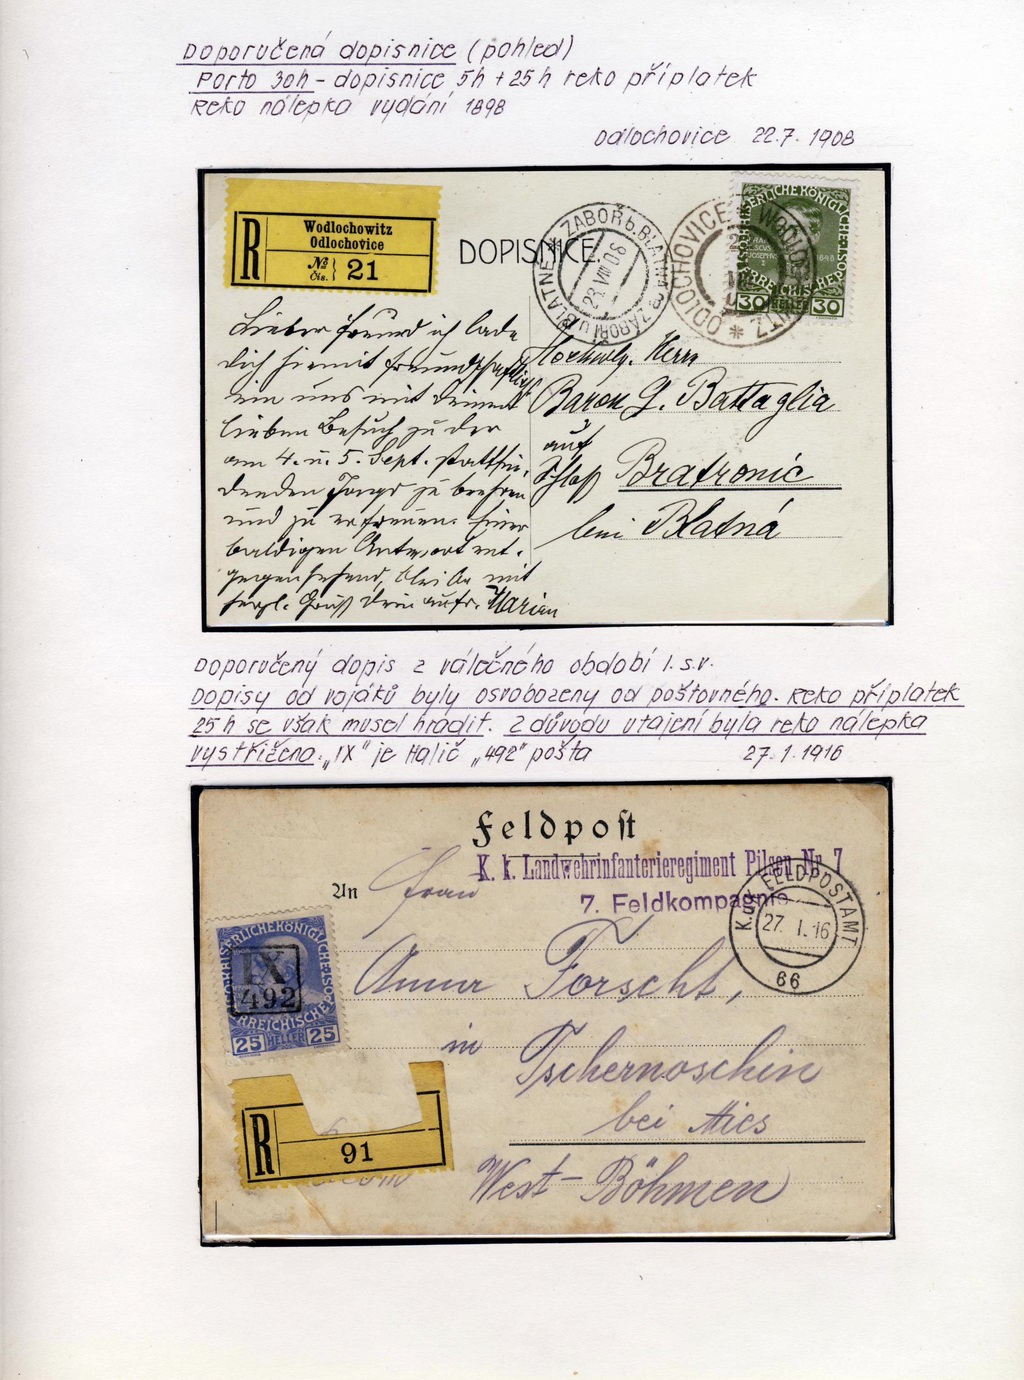 Doporučená dopisnice (pohled)
Porto 30h - dopisnice 5h + 25h reko příplatek
Reko nálepka vydání 1898
Odlochovice 22.7.1908
R
Wodlochowitz
Odlochovice
№
čís. } 21
DOPISNICE.
ZÁBOŘ b. BLATNA ZÁBOŘÍ u BLATNÉ
23 VII 08
ODLOCHOVICE WODLOCHOWITZ
KAISERLICHE KÖNIGLICHE ÖSTERREICHISCHE POST
30 HELLER 30
Lieber Freund ich lade
dich hiermit freundschaftlichst
ein uns mit deinem
lieben Besuch zu der
am 4. u. 5. Sept. stattfin-
denden Jagd zu beehren
und zu erfreuen. Einer
baldigen Antwort ent-
gegensehend, bleibe mit
herzl. Gruß dein aufr. Marian
Hochwolg. Herrn
Baron G. Battaglia
auf
Schloß Bratronic
bei Blatná
Doporučený dopis z válečného období I.s.v.
Dopisy od vojáků byly osvobozeny od poštovného. Reko příplatek
25h se však musel hradit. Z důvodu utajení byla reko nálepka
vystřižena. „IX" je Halič „492" pošta 27.1.1916
Feldpost
K. k. Landwehrinfanterieregiment Pilsen Nr. 7
7. Feldkompagnie
K.u.K. FELDPOSTAMT
27. I. 16
66
An Frau
Anna Forscht,
in Tschernoschin
bei Mies
West-Böhmen
KAISERLICHE KÖNIGLICHE ÖSTERREICHISCHE POST
IX
492
25 HELLER 25
R
91